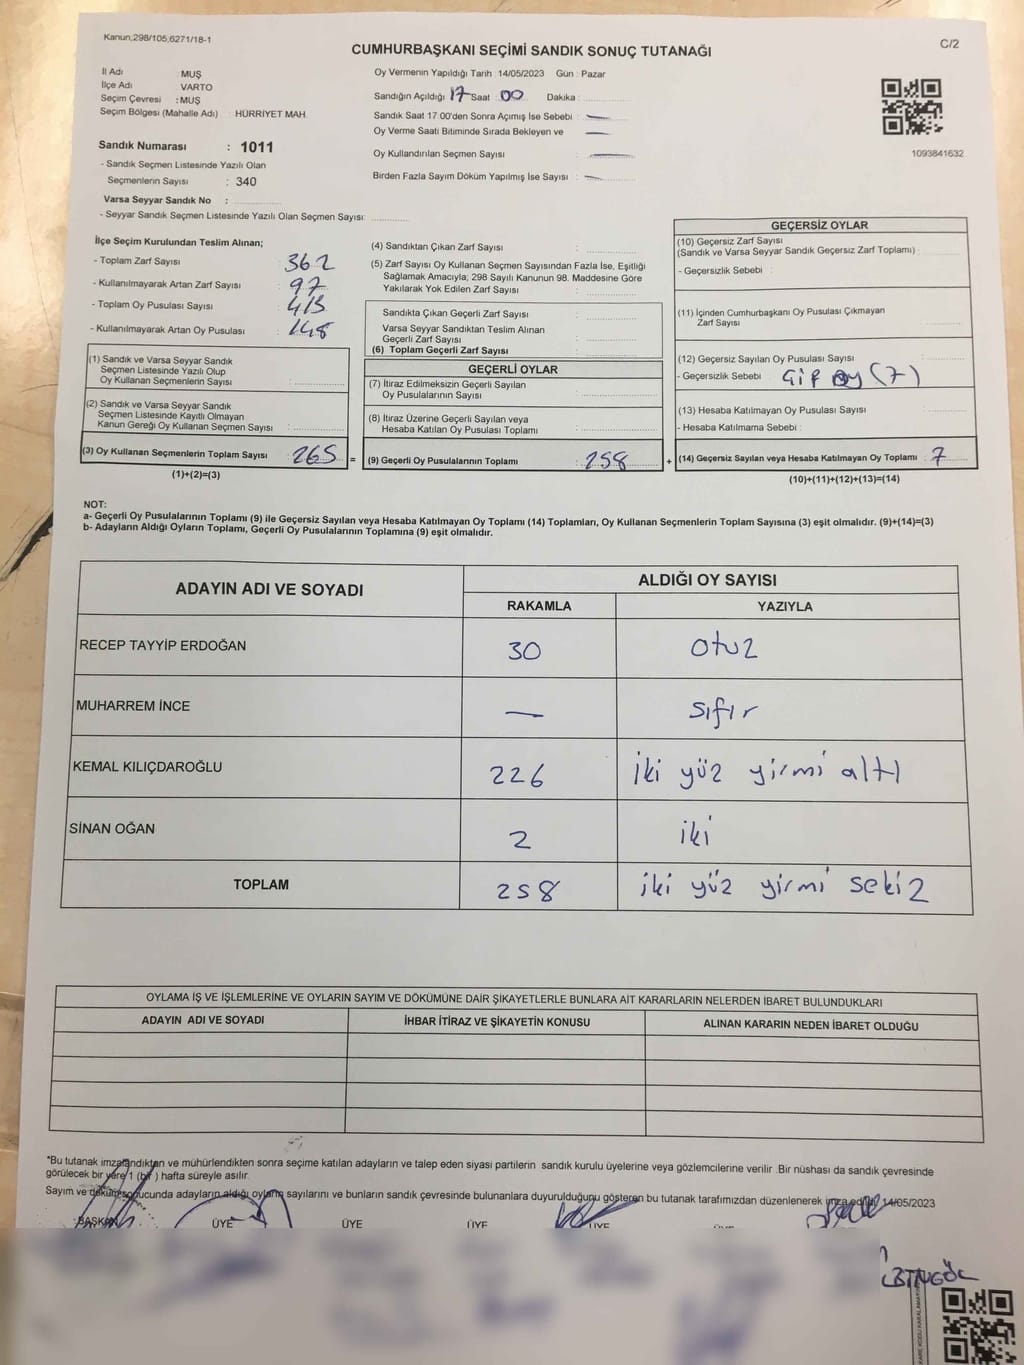 Kanun;298/105;6271/18-1
C/2
CUMHURBAŞKANI SEÇİMİ SANDIK SONUÇ TUTANAĞI
İl Adı : MUŞ
İlçe Adı : VARTO
Seçim Çevresi : MUŞ
Seçim Bölgesi (Mahalle Adı) : HÜRRİYET MAH.
Sandık Numarası : 1011
- Sandık Seçmen Listesinde Yazılı Olan
Seçmenlerin Sayısı : 340
Varsa Seyyar Sandık No :
- Seyyar Sandık Seçmen Listesinde Yazılı Olan Seçmen Sayısı:
Oy Vermenin Yapıldığı Tarih : 14/05/2023 Gün : Pazar
Sandığın Açıldığı 17 Saat : 00 Dakika :
Sandık Saat 17 00'den Sonra Açımış İse Sebebi : —
Oy Verme Saati Bitiminde Sırada Bekleyen ve —
Oy Kullandırılan Seçmen Sayısı : —
Birden Fazla Sayım Döküm Yapılmış İse Sayısı : —
1093841632
İlçe Seçim Kurulundan Teslim Alınan;
- Toplam Zarf Sayısı : 362
- Kullanılmayarak Artan Zarf Sayısı : 97
- Toplam Oy Pusulası Sayısı : 413
- Kullanılmayarak Artan Oy Pusulası : 148
(1) Sandık ve Varsa Seyyar Sandık
Seçmen Listesinde Yazılı Olup
Oy Kullanan Seçmenlerin Sayısı :
(2) Sandık ve Varsa Seyyar Sandık
Seçmen Listesinde Kayıtlı Olmayan
Kanun Gereği Oy Kullanan Seçmen Sayısı :
(3) Oy Kullanan Seçmenlerin Toplam Sayısı : 265 =
(1)+(2)=(3)
(4) Sandıktan Çıkan Zarf Sayısı :
(5) Zarf Sayısı Oy Kullanan Seçmen Sayısından Fazla İse, Eşitliği
Sağlamak Amacıyla; 298 Sayılı Kanunun 98. Maddesine Göre
Yakılarak Yok Edilen Zarf Sayısı :
Sandıkta Çıkan Geçerli Zarf Sayısı :
Varsa Seyyar Sandıktan Teslim Alınan
Geçerli Zarf Sayısı :
(6) Toplam Geçerli Zarf Sayısı :
GEÇERLİ OYLAR
(7) İtiraz Edilmeksizin Geçerli Sayılan
Oy Pusulalarının Sayısı :
(8) İtiraz Üzerine Geçerli Sayılan veya
Hesaba Katılan Oy Pusulası Toplamı :
(9) Geçerli Oy Pusulalarının Toplamı : 258 +
GEÇERSİZ OYLAR
(10) Geçersiz Zarf Sayısı
(Sandık ve Varsa Seyyar Sandık Geçersiz Zarf Toplamı) :
- Geçersizlik Sebebi :
(11) İçinden Cumhurbaşkanı Oy Pusulası Çıkmayan
Zarf Sayısı :
(12) Geçersiz Sayılan Oy Pusulası Sayısı :
- Geçersizlik Sebebi : Çift oy (7)
(13) Hesaba Katılmayan Oy Pusulası Sayısı :
- Hesaba Katılmama Sebebi :
(14) Geçersiz Sayılan veya Hesaba Katılmayan Oy Toplamı : 7
(10)+(11)+(12)+(13)=(14)
NOT:
a- Geçerli Oy Pusulalarının Toplamı (9) ile Geçersiz Sayılan veya Hesaba Katılmayan Oy Toplamı (14) Toplamları, Oy Kullanan Seçmenlerin Toplam Sayısına (3) eşit olmalıdır. (9)+(14)=(3)
b- Adayların Aldığı Oyların Toplamı, Geçerli Oy Pusulalarının Toplamına (9) eşit olmalıdır.
ADAYIN ADI VE SOYADI ALDIĞI OY SAYISI
RAKAMLA YAZIYLA
RECEP TAYYİP ERDOĞAN 30 otuz
MUHARREM İNCE — sıfır
KEMAL KILIÇDAROĞLU 226 iki yüz yirmi altı
SİNAN OĞAN 2 iki
TOPLAM 258 iki yüz yirmi sekiz
OYLAMA İŞ VE İŞLEMLERİNE VE OYLARIN SAYIM VE DÖKÜMÜNE DAİR ŞİKAYETLERLE BUNLARA AİT KARARLARIN NELERDEN İBARET BULUNDUKLARI
ADAYIN ADI VE SOYADI İHBAR İTİRAZ VE ŞİKAYETİN KONUSU ALINAN KARARIN NEDEN İBARET OLDUĞU
*Bu tutanak imzalandıktan ve mühürlendikten sonra seçime katılan adayların ve talep eden siyasi partilerin sandık kurulu üyelerine veya gözlemcilerine verilir. Bir nüshası da sandık çevresinde
görülecek bir yere 1 (bir) hafta süreyle asılır.
Sayım ve döküm sonucunda adayların aldığı oyların sayılarını ve bunların sandık çevresinde bulunanlara duyurulduğunu gösteren bu tutanak tarafımızdan düzenlenerek imza edildi. 14/05/2023
BAŞKAN ÜYE ÜYE ÜYE ÜYE
BİNGÖL